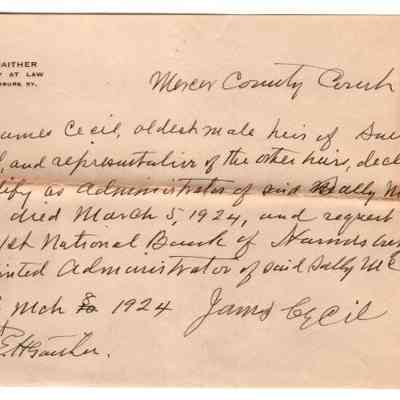 AITHER
Y AT LAW
DSBURG, KY.
Mercer County Court
James Cecil, oldest male heir of Sal
and representative of the other heirs, decl
tify as Administrator of said Sally Mc
died March 5, 1924, and request
1st National Bank of Harrods
inted Administrator of said Sally McC
Mch 8 1924 James Cecil
E H Gaither.